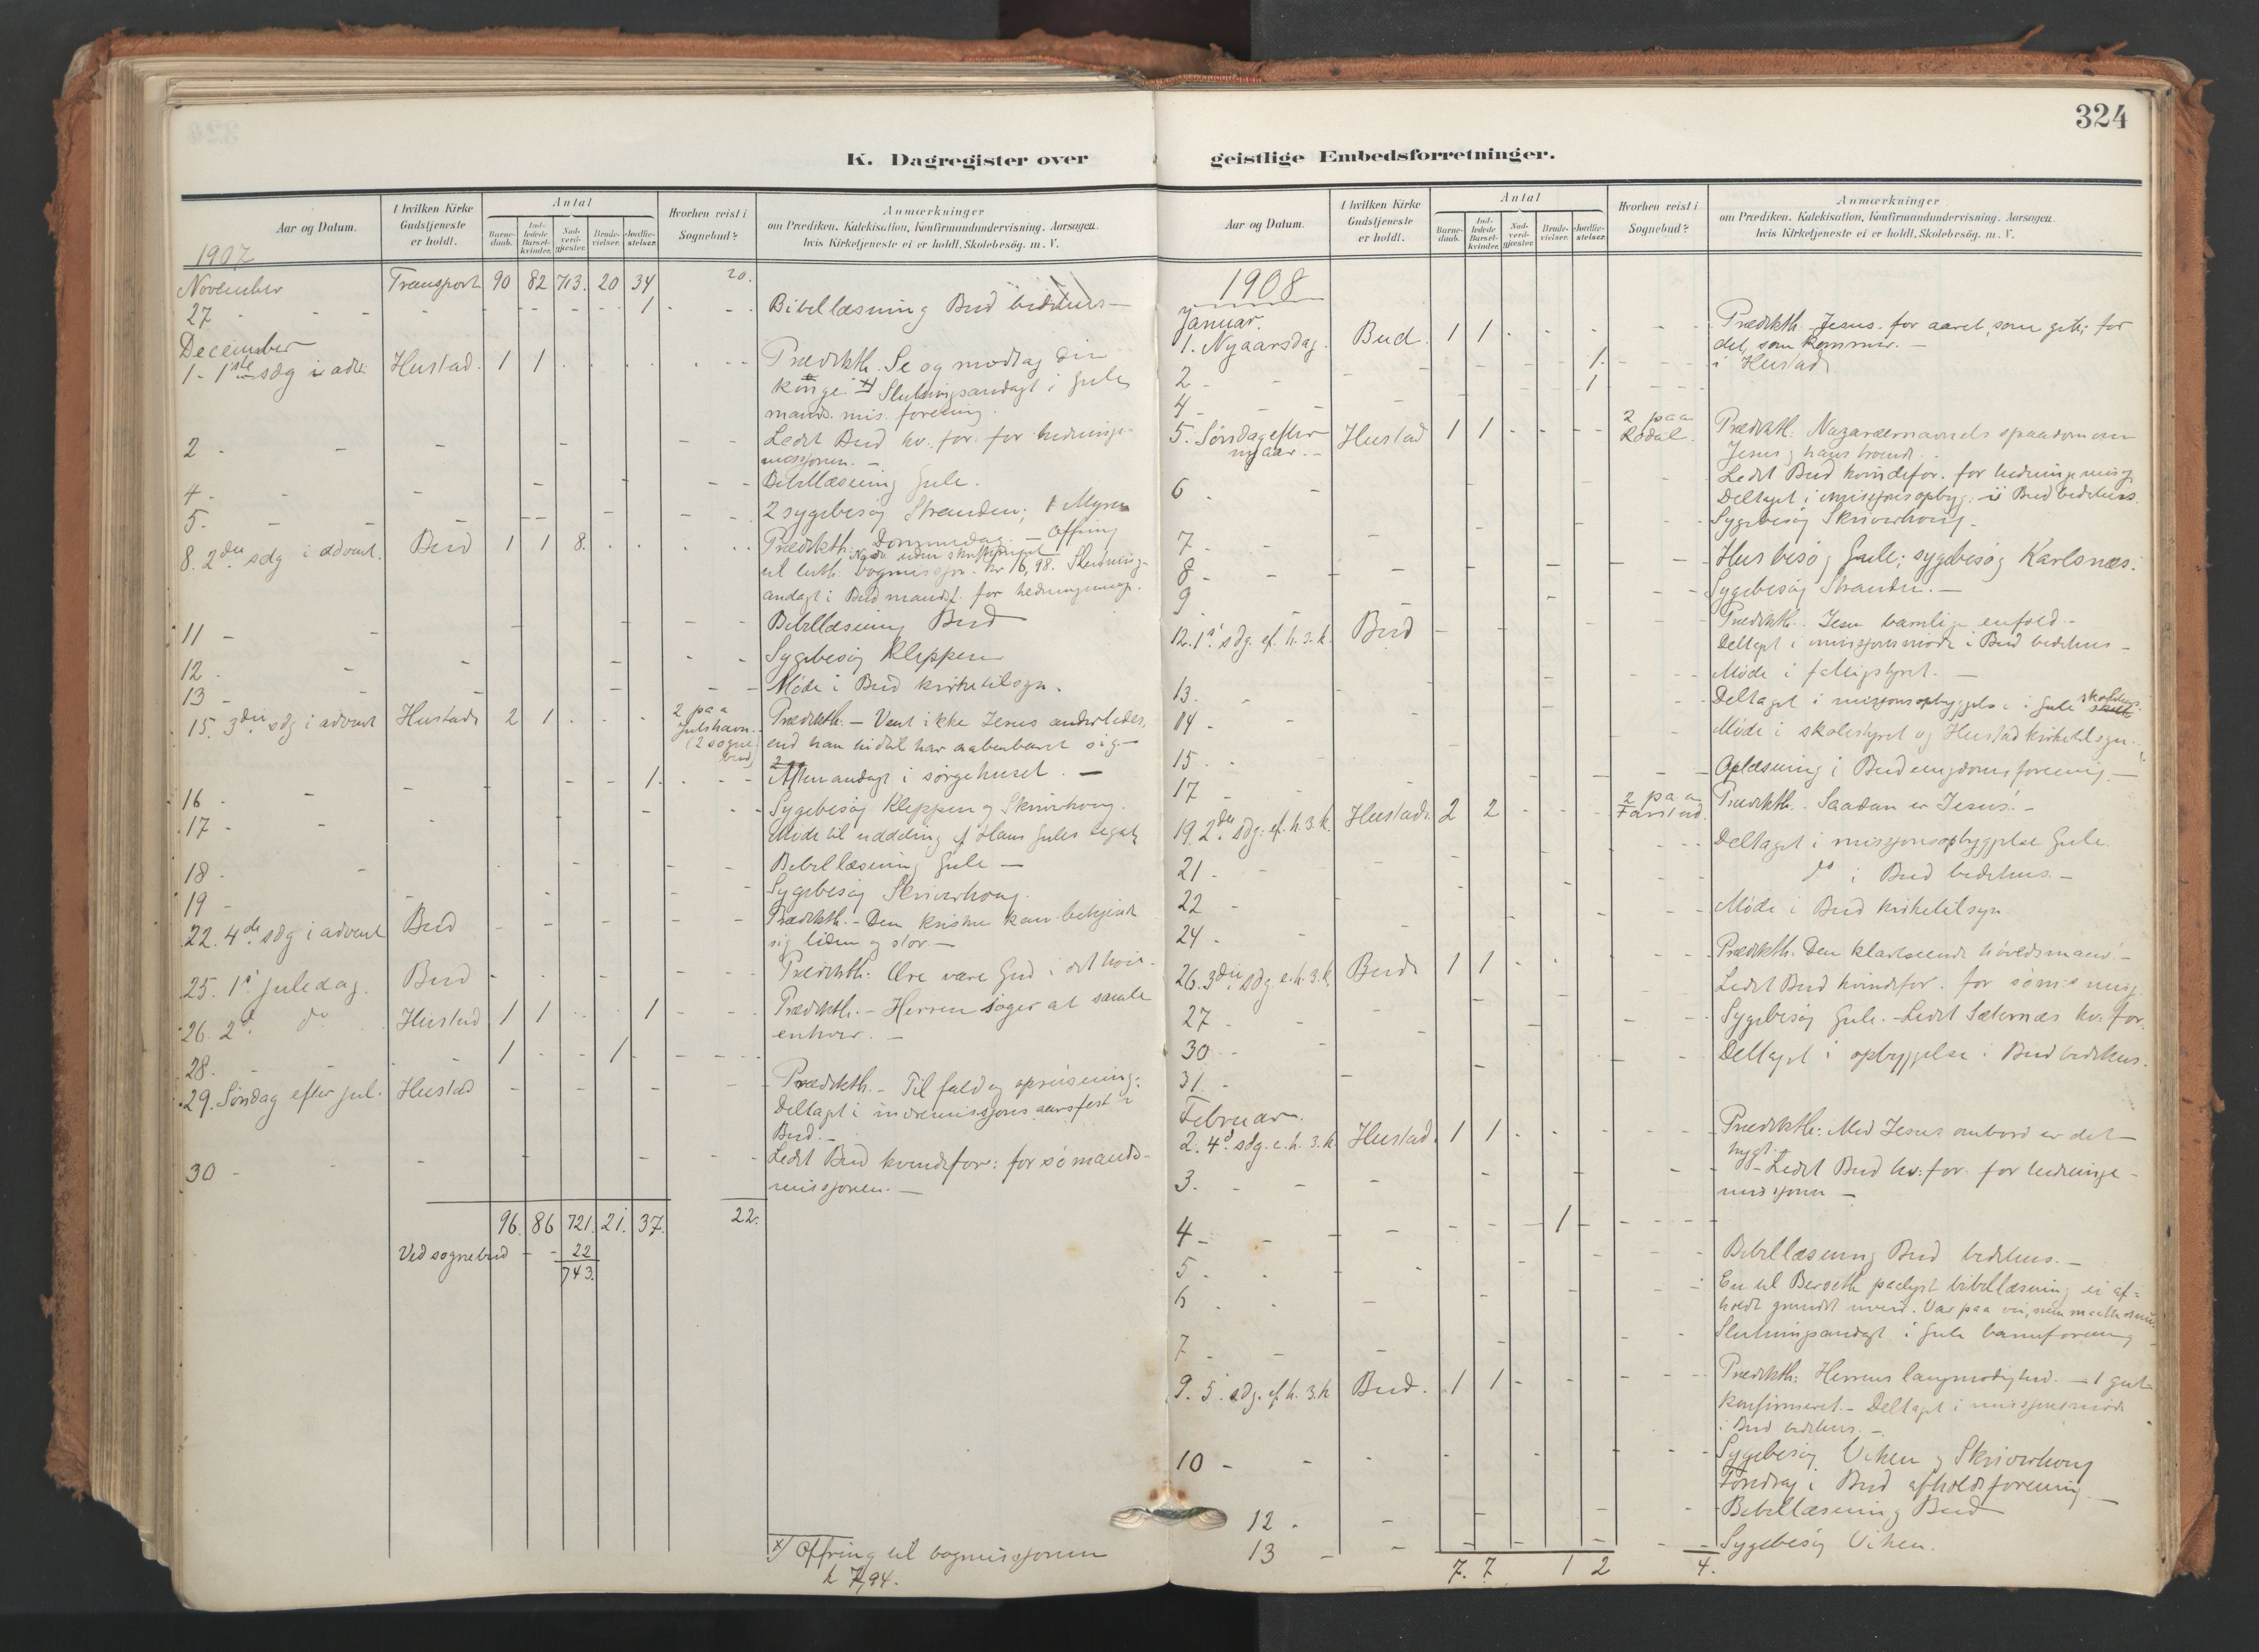 324
K. Dagregister over
geistlige Embedsforretninger.
Aar og Datum.
I hvilken Kirke Gudstjeneste er holdt.
Antal
Barne-daab.
Ind-ledede Barsel-kvinder.
Nad-verd-gjester.
Brude-vielser.
Jordfæ-stelser.
Hvorhen reist i Sognebud?
Anmærkninger
om Prædiken. Katekisation, Konfirmandundervisning. Aarsagen.
hvis Kirketjeneste ei er holdt. Skolebesög. m. V.
1907
November Transport 90 82 713. 20 34 20.
27 - - - - - - - 1 - - Bibellæsning Bud bedehus -
December
1 - 1ste sdg i adv. Hustad. 1 1 Prædikth. Se og modtag din
konge. x) Slutningsandagt i Gule
mands. mis. forening.
2 - - - - - Ledet Bud kv. for. for hedninge-
missjonen. -
4 - - - - Bibellæsning Gule.
5. - - - - 2 sygebesøg Stranden; 1 Myren
8. 2den sdg i advent. Bud 1 1 8. Prædikth: Dommedag. - Offring
til luth. bogmissjon. kr 16,98. Slutnings-
andagt i Bud mandsf. for hedningemisj.
11 - - - - - Bibellæsning Bud
12 - - - - - Sygebesøg Kleppen
13 - - - - - Møde i Bud kirketilsyn.
15. 3die sdg i advent Hustad 2 1 2 paa
Julshavn.
(2 sogne
bud)
Prædikth. - Vent ikke Jesus anderledes,
end han hidtil har aabenbaret sig. -
16 - - - - 1. - - Aftenandagt i sørgehuset. -
17 - - - - - Sygebesøg Kleppen og Skriverhaug.
Møde til uddeling af Hans Gules legat
18 - - - - - Bibellæsning Gule -
19 - - - - Sygebesøg Skriverhaug.
22. 4de sdg i advent Bud - - - - Prædikth. - Den kristne kan
sig liden og stor. -
25. 1ste juledag. Bud - - - - Prædikth: Ære være Gud i det høie.
26. 2. do Hustad 1 1 1 Prædikth. - Herren søger at samle
enhver. -
28. - - 1 - - 1 - - -
29. Søndag efter jul. Hustad - - - Prædikth. - Til fald og opreisning.
Deltaget i indremissjons aarsfest i
Bud. -
30 - - - - - Ledet Bud kvindefor: for sømands-
missjonen. -
96. 86 721. 21. 37. 22.
Ved sognebud - - 22
743.
x) Offring til bogmissjonen
k 7,94.
Aar og Datum.
I hvilken Kirke Gudstjeneste er holdt.
Antal
Barne-daab.
Ind-ledede Barsel-kvinder.
Nad-verd-gjester.
Brude-vielser.
Jordfæ-stelser.
Hvorhen reist i Sognebud?
Anmærkninger
om Prædiken. Katekisation, Konfirmandundervisning. Aarsagen.
hvis Kirketjeneste ei er holdt. Skolebesög. m. V.
1908
Januar.
1. Nyaarsdag. Bud. 1 1 - - - Prædikth. Jesus. for aaret, som gik; for
det, som kommer. -
2 - - - - 1. - - i Hustad.
4 - - - - 1 - - -
5. Søndag efter
nyaar. - Hustad 1 1 - - - 2 paa
Rødal. Prædikth: Nazaræernavnets spaadom om
Jesus og hans
6 - - Ledet Bud kvindefor. for hedningemisj.
Deltaget i missjonsopbyg. i Bud bedehus.
7 - - - - - Sygebesøg Skriverhaug.
8 - - - - - Husbesøg Gule; sygebesøg Karlsnæs.
9 - - - - Sygebesøg Stranden. -
12. 1ste sdg. ef. h. 3. k. Bud - - - - Prædikth. Jesu barnlige enfold. -
Deltaget i missjonsmøde i Bud bedehus -
13. - - - - Møde i fattigstyret. -
14 - - - - - Deltaget i missjonsopbyggelse i Gule
15 - - - - - Møde i skolestyret og Hustad kirketilsyn.
17 - - - - - Oplæsning i Bud ungdomsforening -
19. 2den sdg. ef. h. 3. k. Hustad. 2 2 - - - 2 paa
Farstad. Prædikth. - Saadan er Jesus! -
21 - - - - - Deltaget i missjonsopbyggelse Gule.
22 - - - - - do i Bud bedehus. -
24 - - - - - Møde i Bud kirketilsyn.
26. 3die sdg. e. h. 3. k. Bud 1 1 - - - Prædikth: Den klartseende høvedsmand. -
27 - - - - - Ledet Bud kvindefor. for sømsmisj.
30 - - - - - Sygebesøg Gule. - Ledet Sæternæs kv. for.
31. - - - - - Deltaget i opbyggelse i Bud bedehus.
Februar.
2. 4de sdg. e. h. 3. k Hustad. 1 1 - - - Prædikth: Med Jesus ombord er det
trygt. -
3. - - - - - Ledet Bud kv: for. for hedninge-
missjonen -
4 - - - - 1 - - - -
5 - - - - - Bibellæsning Bud bedehus. -
6 - - - - - En til Berseth paalyst bibellæsning ei af-
holdt grundet uveir. Var paa vei, men maatte snu.
7 - - - - Slutningsandagt i Gule barneforening
9. 5. sdg. ef. h. 3. k Bud. 1 1 - - - Prædikth: Herrens langmodighed. - 1 gut
konfirmeret. - Deltaget i missjonsmøde
i Bud bedehus. -
10 - - - - - Sygebesøg Viken og Skriverhaug
Foredrag i Bud afholdsforening -
12 - - - - - Bibellæsning Bud
13 - - - - - Sygebesøg Viken.
7. 7 1 2 4.